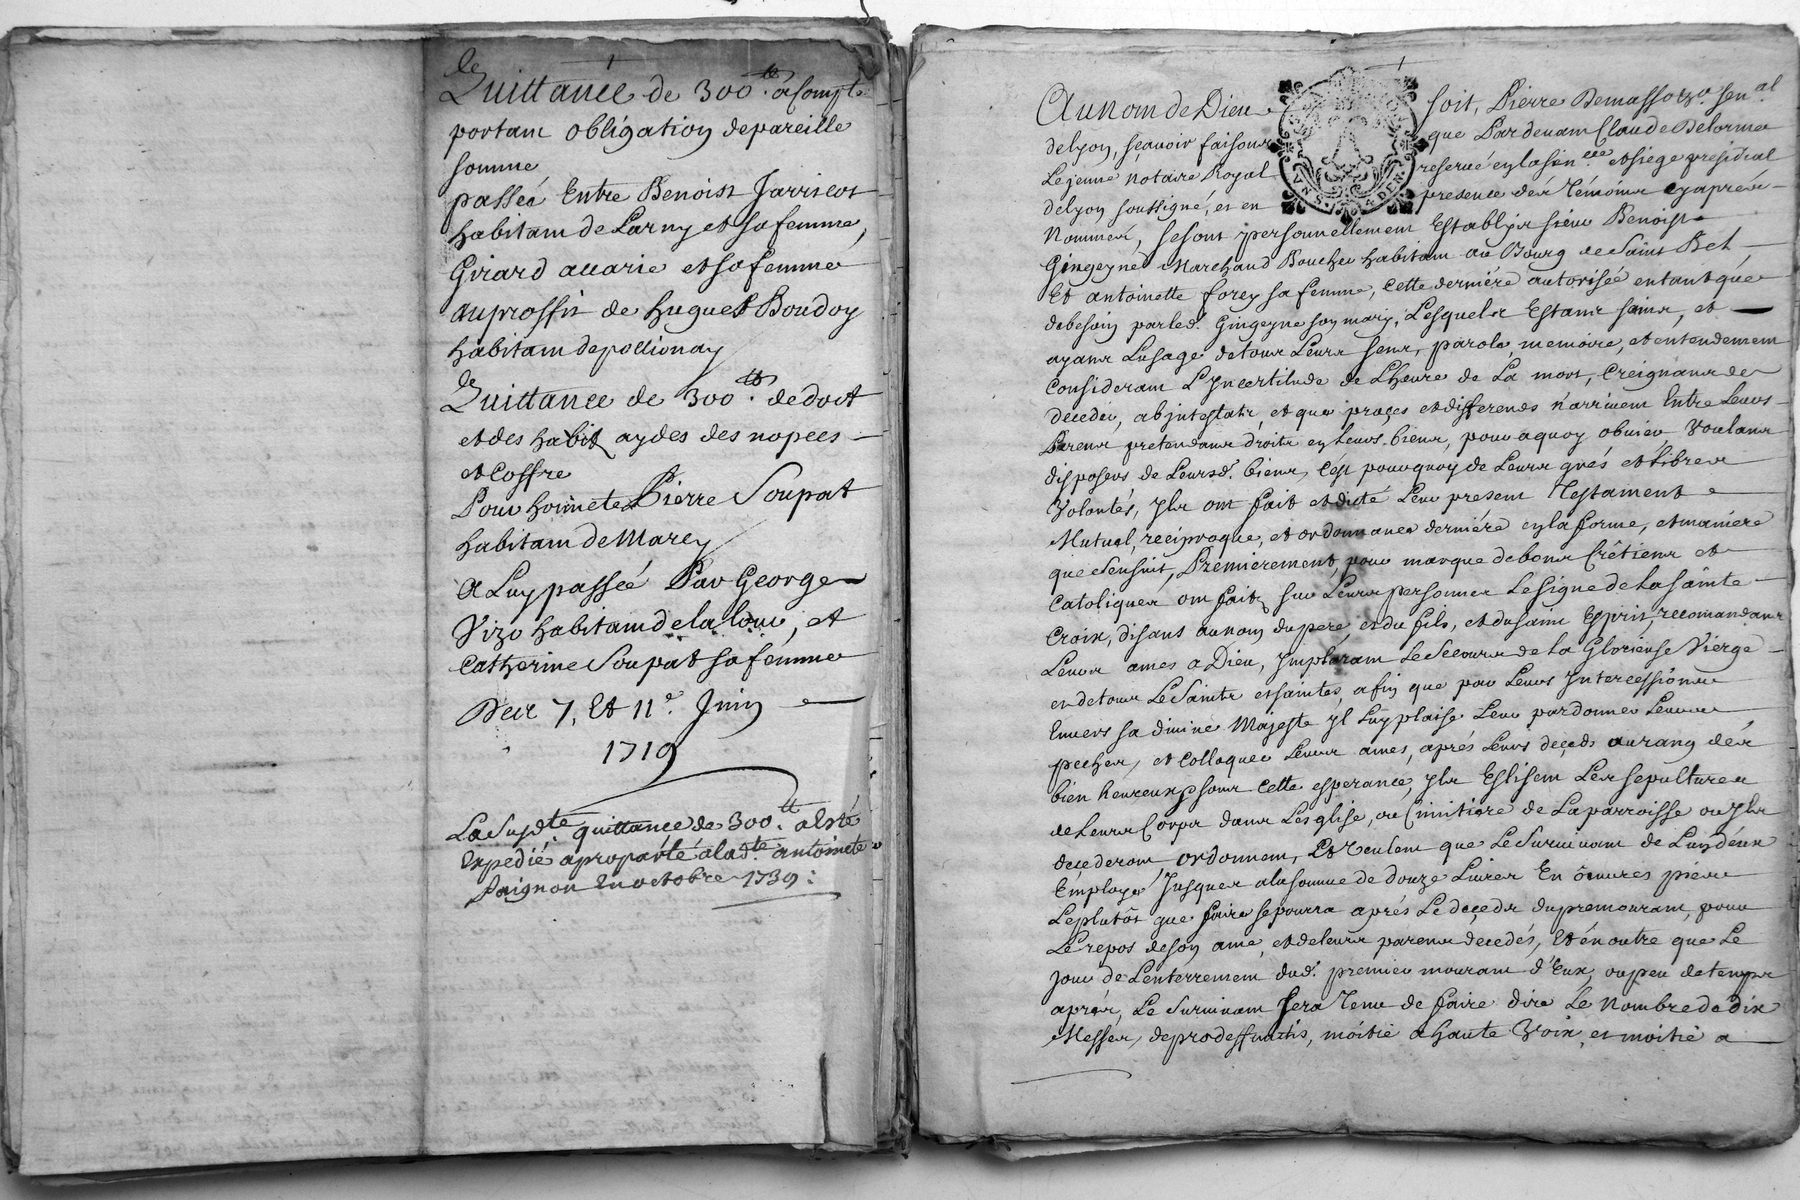 Quittance de 300 lt. acompte
portant obligation depareille
somme
passée Entre Benoist Jarricot
habitant de Larny et sa femme,
Girard accarie et sa femme
auproffit de hugues Boudoy
habitant depollionay
Quittance de 300 lt. dedost
et des habit aydes des nopces
et Coffre
Pour honnete Pierre Soupat
habitant de Marcy
a Luy passée Par George
Vizo habitant de la
Catherine Soupat sa femme
Des 7, Et 11e. Juin
1719
La Susdte. quittance de 300 lt. a esté
Expedié aproparté a ladte. antoinete
En octobre 1739:
Au nom de Dieu soit, Pierre
delyon, sçavoir faisons que Pardevant Claude Delorme
Le jeune Notaire Royal reservé en la sen.cee et siége présidial
delyon soussigné, et en presence dés témoins cyaprés
Nommés, se sont personnellement Establis sieur Benoist
Gingeyne Marchand Boucher habitant au Bourg de Saint Bel
Et antoinette forey sa femme, Cette derniére autorisée entant que
debesoin parled. Gingeyne son mary, Lesquels Estant sains, et
ayans Lusage de tous Leurs sens, parole, memoire, et entendement
Considerant L'yncertitude de Lheure de La mort, Creignans de
deceder, abjntestats, et que proçes et differends n'arrivent Entre Leurs
Parens pretendans droits en Leurs biens, pour aquoy obvier, Voulans
disposers de Leursd. biens, C'est pourquoy de Leurs grés et Libres
Volontés, yls ont fait et dicté Leur present Testament
Mutuel, réciproque, et ordonnance derniére en la forme, et maniére
que s'ensuit, Premierement, pour marque de bons Crêtiens et
Catoliques ont fait sur Leurs personnes Le signe de La sainte
Croix, disans au nom du pere et du fils, et du saint Esprit, recomandans
Leurs ames a Dieu, ymplorant Le secours de La Glorieuse Vierge
et de tous Le Saints et saintes, afin que par Leurs Intercessions
Envers sa divine Majesté yl Luy plaise Leur pardonner Leurs
pechés, et Colloquer Leurs ames, aprés Leurs deçeds au rang dés
bien heureux, sous Cette esperance, yls Eslisent Les sepultures
de Leurs Corps dans Lesglise, ou Cimitiére de La parroisse ou yls
decederont ordonnent, Et veulent que Le survivant de Luy d'eux
Employe jusques a la somme de douze Livres En œuvres pies
Leplutôt que faire se pourra aprés Le deçeds du premourant, pour
Le repos de son ame, et de leurs parens decedés, Et én outre que Le
jour de L'enterrement dud. premier mourant d'Eux, ou peu de temps
aprés, Le survivant sera tenu de faire dire Le Nombre de dix
Messes, de pro deffunctis, moitié a haute Voix, et moitié a